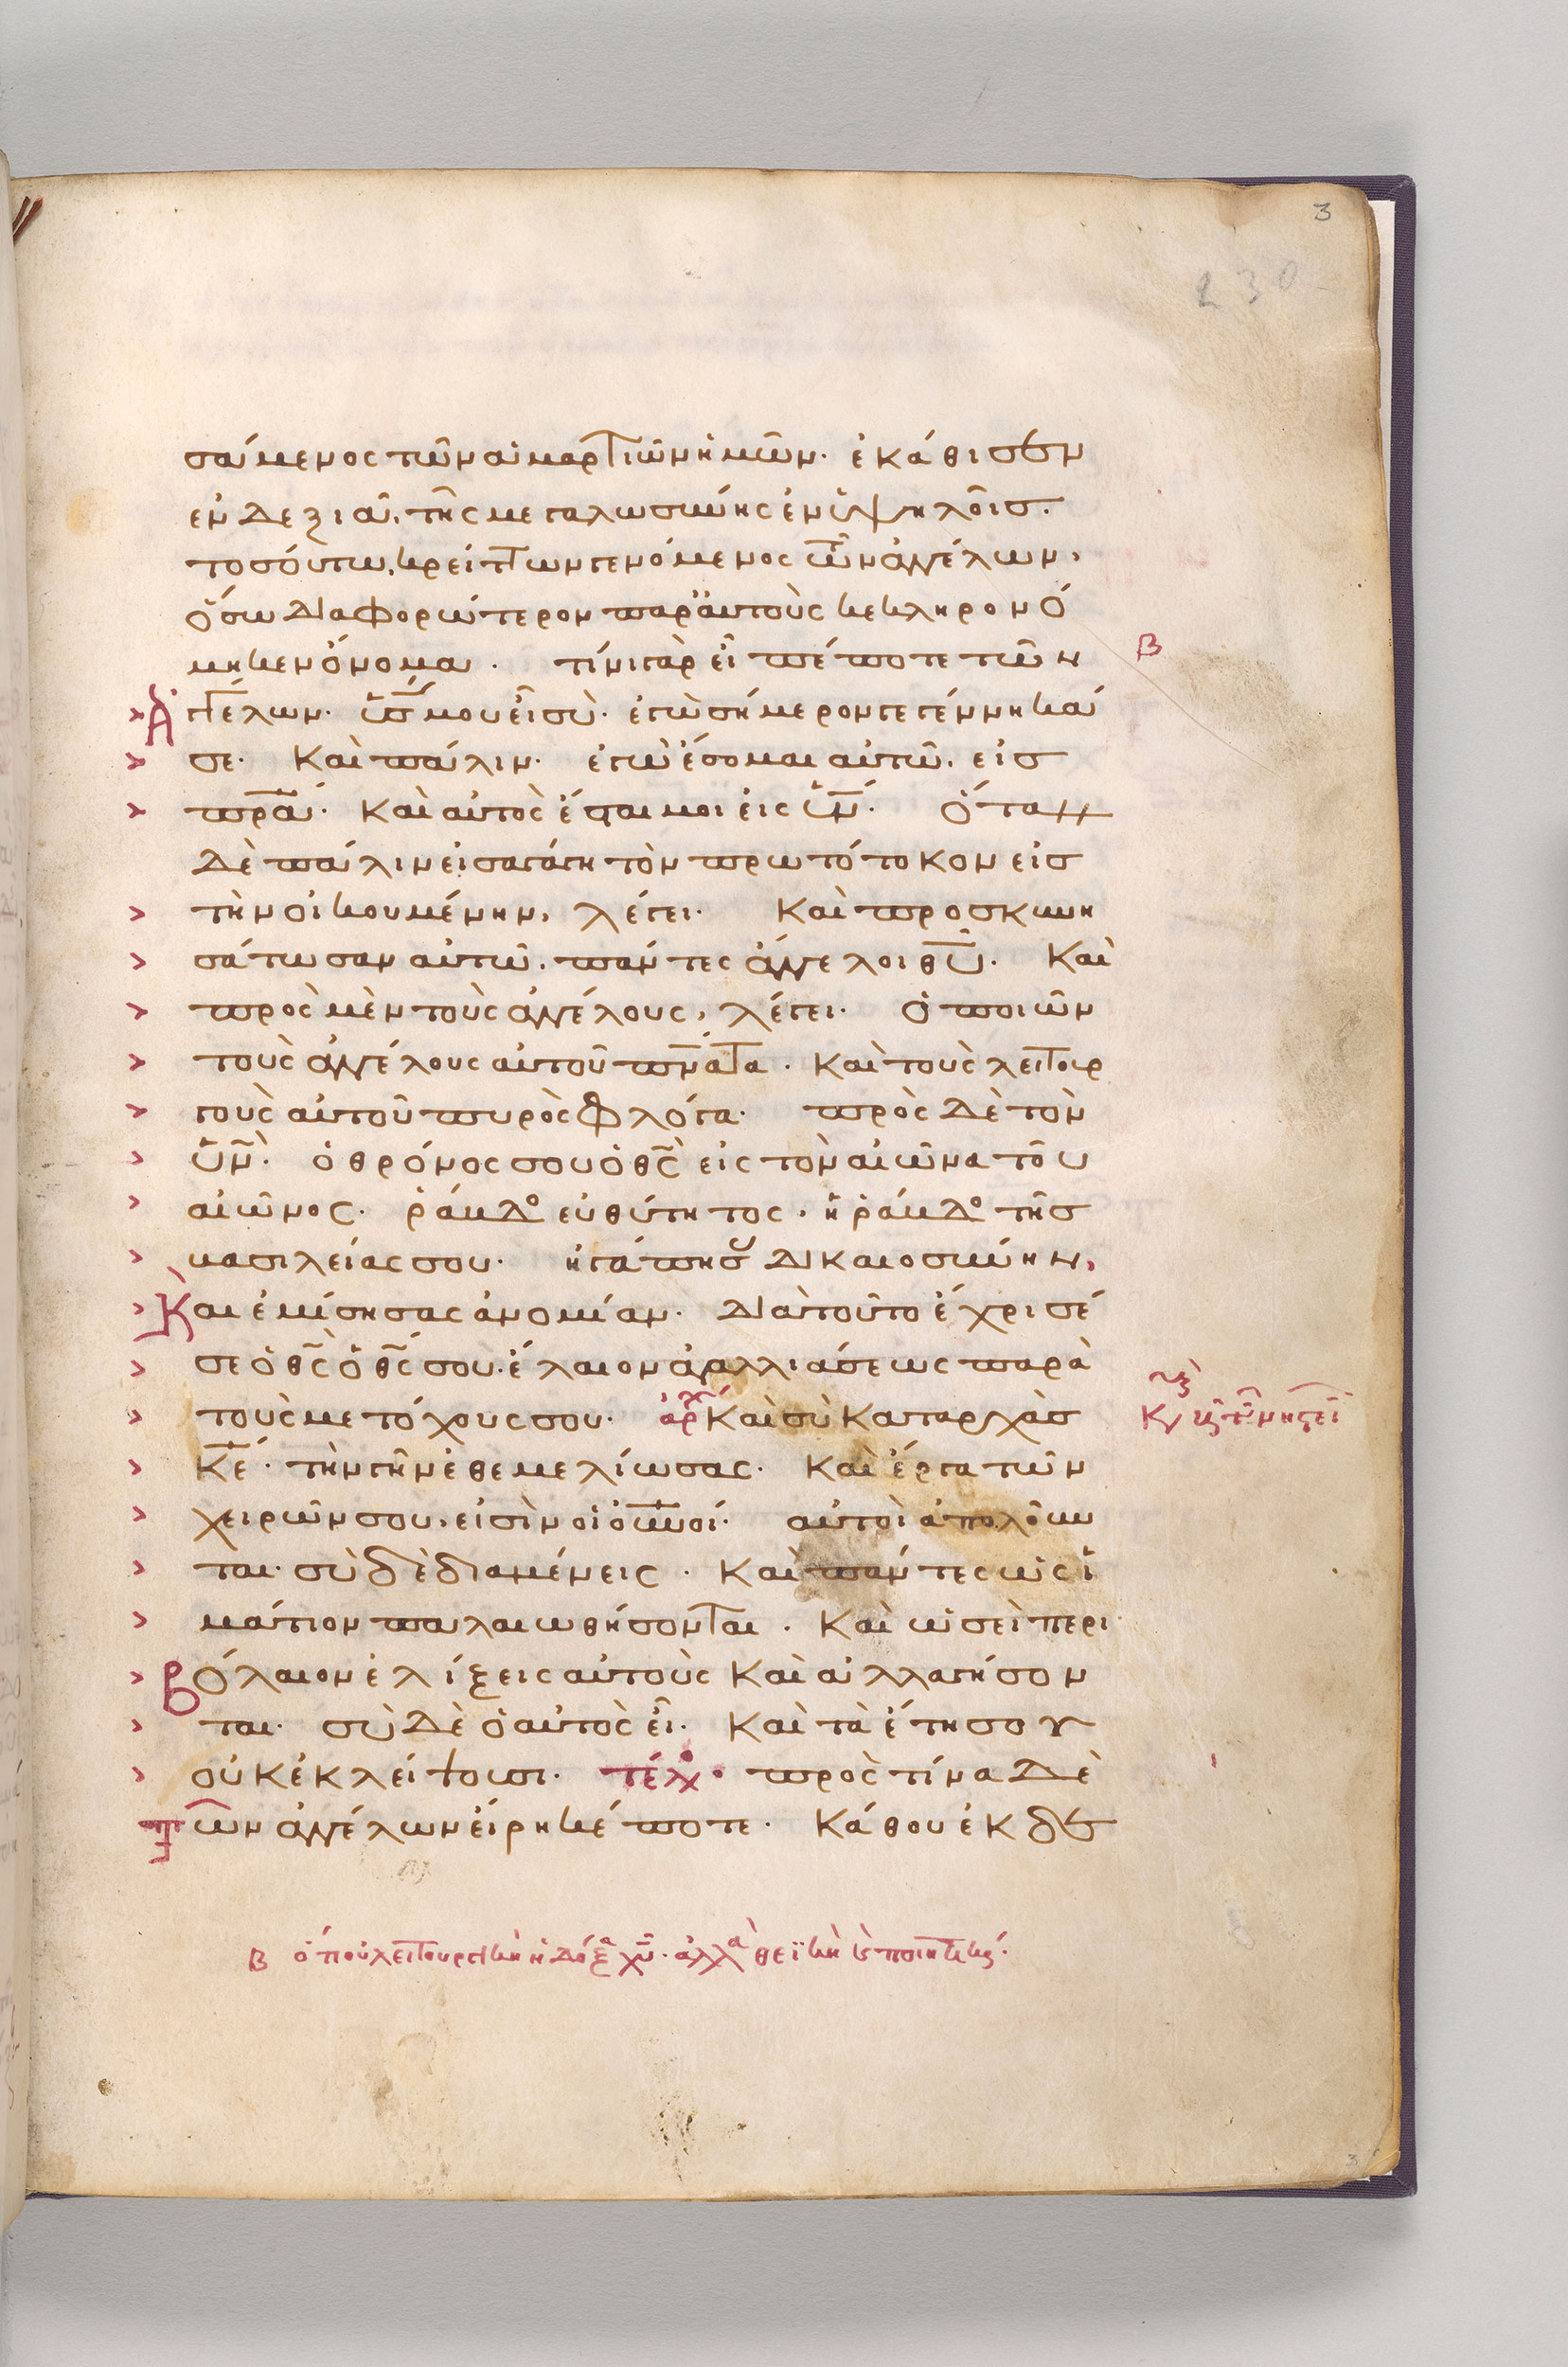 3
230
σάμενος τῶν ἁμαρτιῶν ἡμῶν· ἐκάθισεν
ἐν δεξιᾷ τῆς μεγαλωσύνης ἐν ὑψηλοῖσ·
τοσούτω κρείττων γενόμενος τῶν ἀγγέλων,
ὅσω διαφορώτερον παρ' αυτοὺς κεκληρονό
μηκεν ὄνομα· τίνι γὰρ εἶπέ ποτε τῶν
β
ἀγγέλων· ῡς̄ μου εἶ σὺ· ἐγὼ σήμερον γεγέννηκά
σε· Καὶ πάλιν· ἐγὼ ἔσομαι αὐτῶ, εἰσ
πρ̄α· Καὶ αὐτὸς ἔσται μοι εἰς ῡν̄· Ὅταν
δὲ πάλιν εἰσαγάγη τὸν πρωτότοκον εἰσ
τὴν οἰκουμένην, λέγει· Καὶ προσκυνη
σάτωσαν αὐτῶ, πάντες ἄγγελοι θ̄ῡ· Καὶ
πρὸς μὲν τοὺς ἀγγέλους, λέγει· ὁ ποιῶν
τοὺς ἀγγέλους αὐτοῦ πν̄ατα· Καὶ τοὺς λειτουρ
γοὺς αὐτοῦ πυρὸς φλόγα· πρὸς δὲ τὸν
ῡν̄· ὁ θρόνος σου ὁ θ̄ς̄ εἰς τὸν αἰῶνα τοῦ
αἰῶνος· ῥάβδο εὐθύτητος, ἡ ῥάβδο τῆσ
βασιλείας σου· ἠγάπησας δικαιοσύνην,
Και ἐμίσησας ἀνομίαν· διατοῦτο ἔχρισέ
σε ὁ θ̄ς̄ ὁ θ̄ς̄ σου· ἔλαιον ἀγαλλιάσεως παρὰ
τοὺς μετόχους σου· ἀρχ Καὶ σὺ Καταρχὰσ
κ̄ε̄· τὴν γῆν ἐθεμελίωσας· Καὶ ἔργα τῶν
χειρῶν σου, εἰσὶν οἱ οὐ̄νοί· αὐτοὶ ἀπολοῦν
ται· σὺ δὲ διαμένεις· Καὶ πάντες ὡς ἱ
μάτιον παλαιωθήσονται· Καὶ ὡσεὶ περι
βόλαιον ἑλίξεις αὐτοὺς Καὶ ἀλλαγήσον
ται· σὺ δὲ ὁ αὐτὸς εἶ· Καὶ τὰ ἔτη σου
οὐκ ἐκλείψουσι· τέλο πρὸς τίνα δὲ
τῶν ἀγγέλων εἴρηκέ ποτε· Κάθου ἐκ δε
β ὅτι οὐ λειτουργικὴ ἡ δόξα χ̄ῡ· ἀλλὰ θεϊκὴ καὶ ποιητικὴ·
3